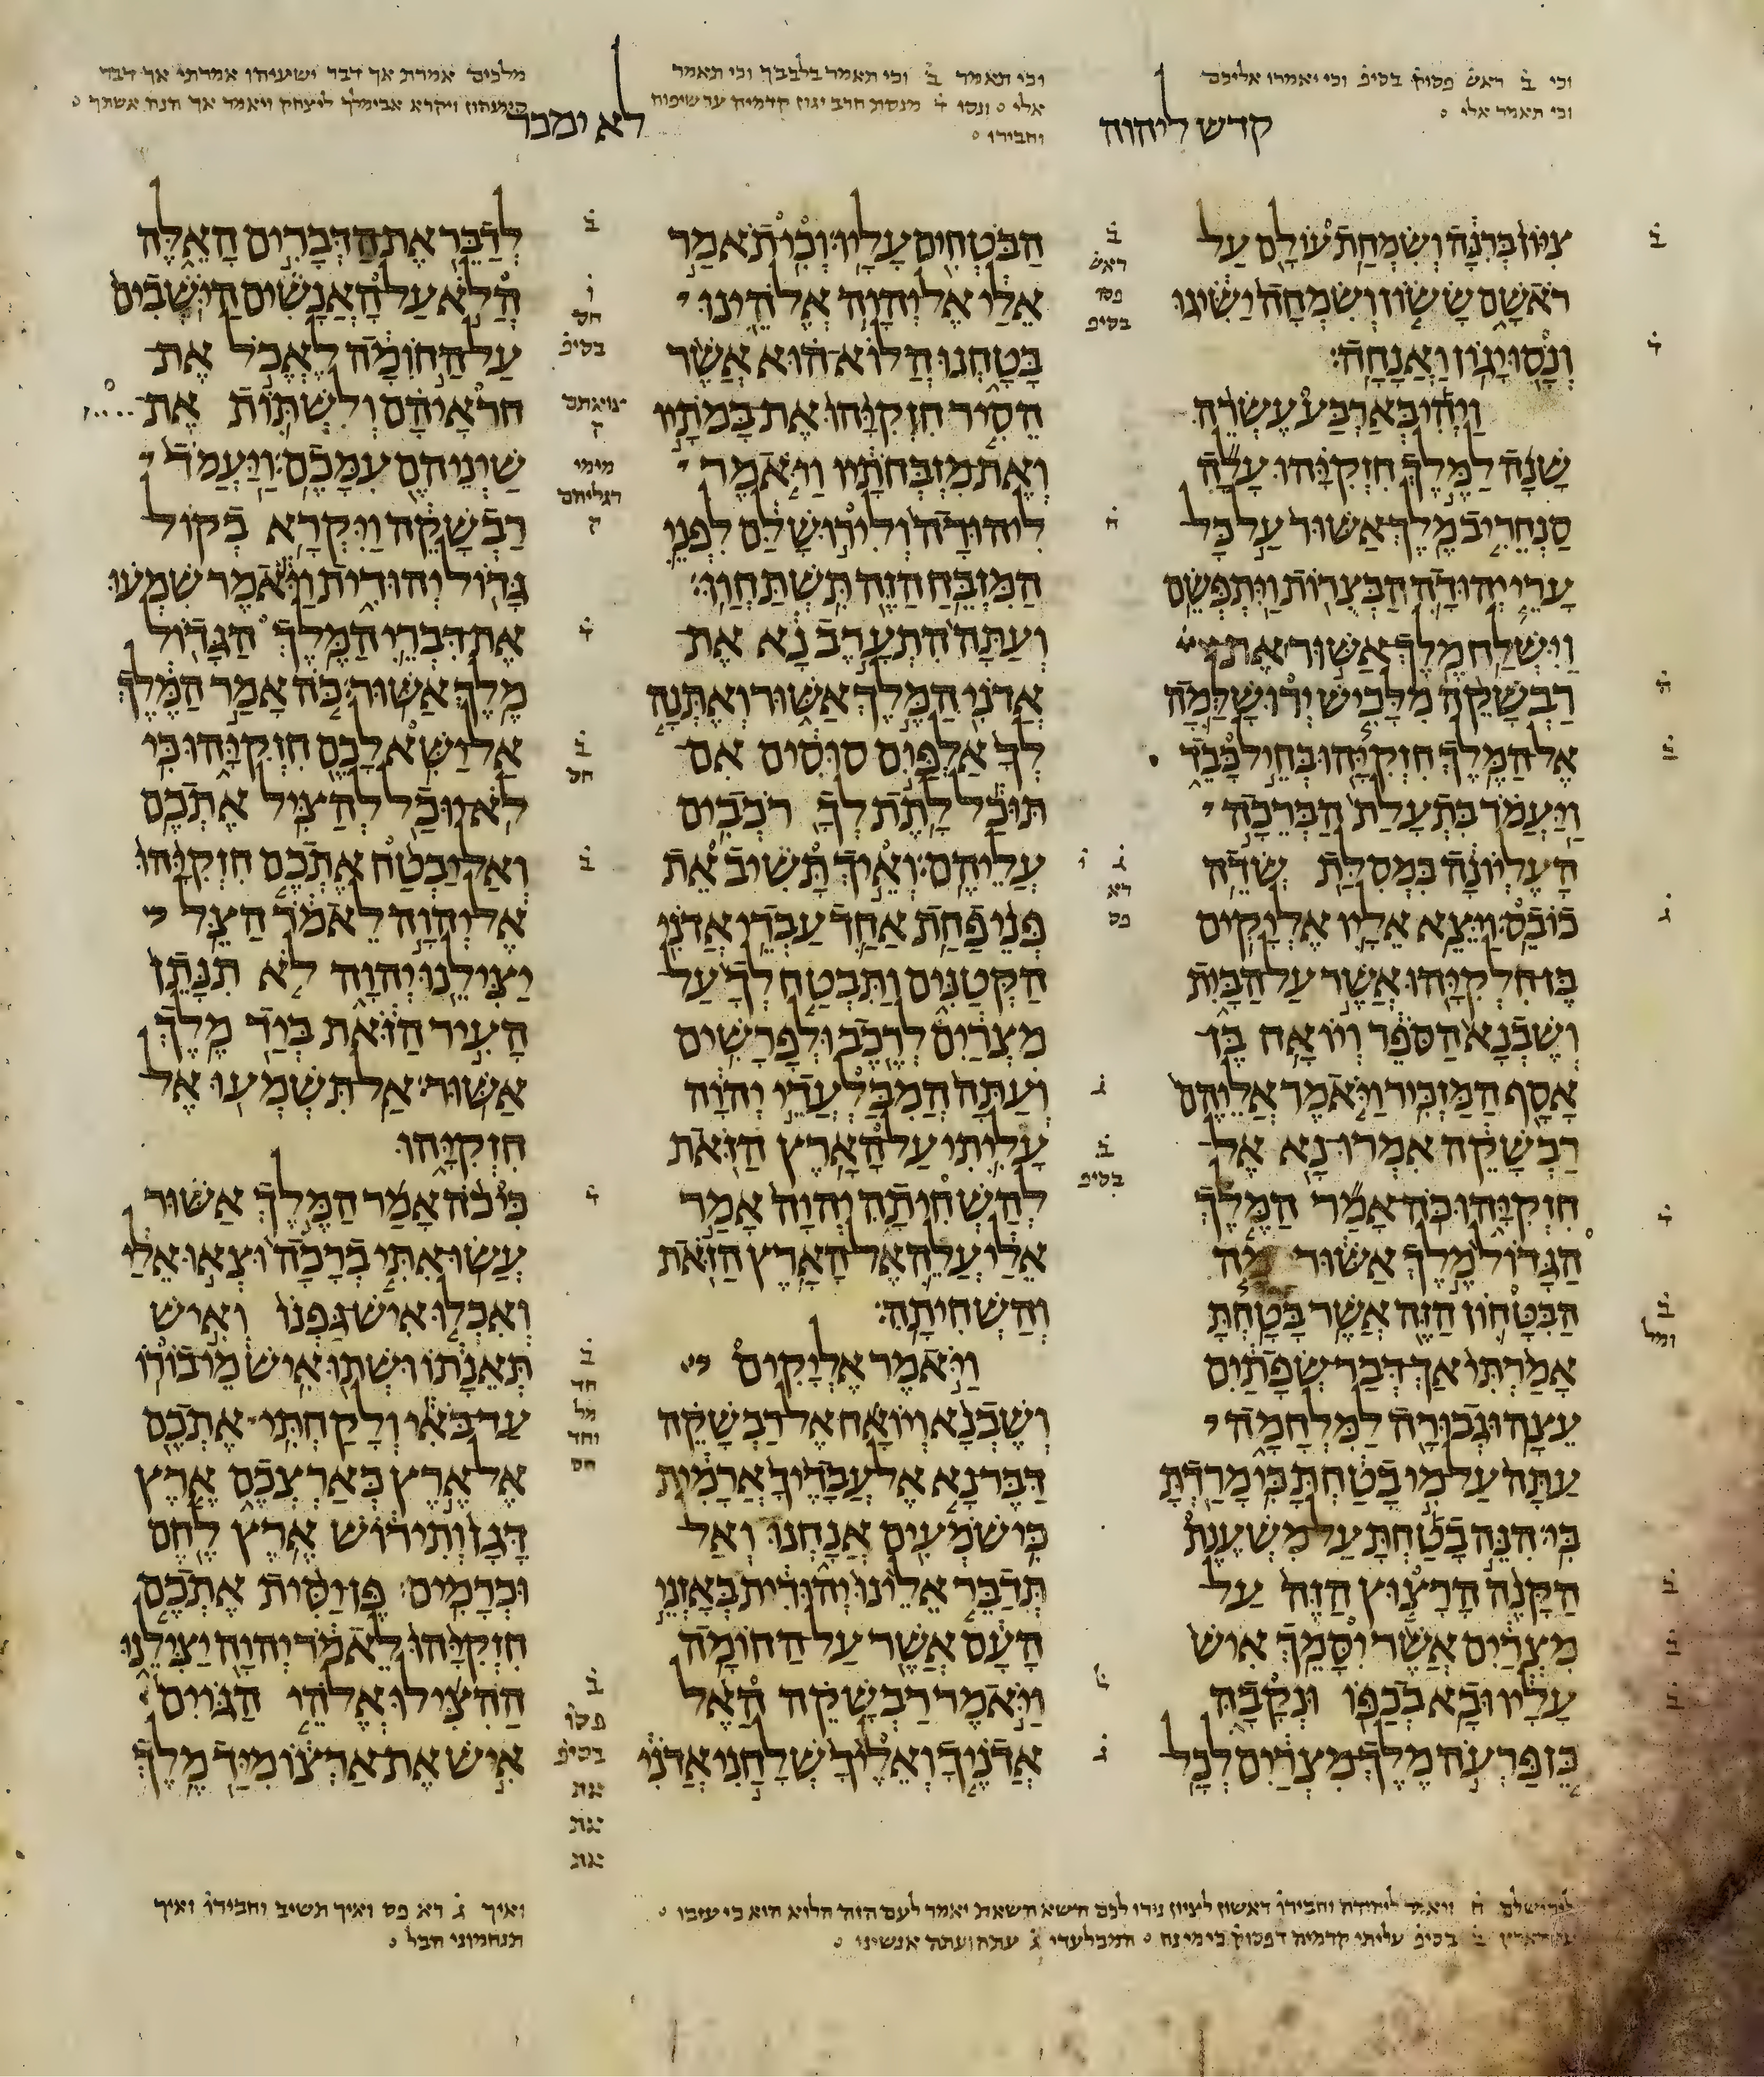 וכי ב ראש פסוק בסיפ וכי יאמרו אליכם
וכי תאמר אלי
וכי תאמר ב וכי תאמר בלבבך וכי תאמר
אלי ונסו ד מנסת חרב יגון קדמיה עד שיפוח
וחבירו
מלכים אמרת אך דבר ישעיהו אמרתי אך דבר
ויקרא אבימלך ליצחק ויאמר אך הנה אשתך
קדש ליהוה
לא ימכר
ציון ברנה ושמחת עולם על
ראשם ששון ושמחה ישיגו
ונסו יגון ואנחה׃
ויהי בארבע עשרה
שנה למלך חזקיהו עלה
סנחריב מלך אשור על כל
ערי יהודה הבצרות ויתפשם׃
וישלח מלך אשור את
רבשקה מלכיש ירושלמה
אל המלך חזקיהו בחיל כבד
ויעמד בתעלת הברכה
העליונה במסלת שדה
כובס׃ ויצא אליו אליקים
בן חלקיהו אשר על הבית
ושבנא הספר ויואח בן
אסף המזכיר׃ ויאמר אליהם
רבשקה אמרו נא אל
חזקיהו כה אמר המלך
הגדול מלך אשור מה
הבטחון הזה אשר בטחת׃
אמרתי אך דבר שפתים
עצה וגבורה למלחמה
עתה על מי בטחת כי מרדת
בי׃ הנה בטחת על משענת
הקנה הרצוץ הזה על
מצרים אשר יסמך איש
עליו ובא בכפו ונקבה
כן פרעה מלך מצרים לכל
הבטחים עליו׃ וכי תאמר
אלי אל יהוה אלהינו
בטחנו הלוא הוא אשר
הסיר חזקיהו את במתיו
ואת מזבחתיו ויאמר
ליהודה ולירושלם לפני
המזבח הזה תשתחוו׃
ועתה התערב נא את
אדני המלך אשור ואתנה
לך אלפים סוסים אם
תוכל לתת לך רכבים
עליהם׃ ואיך תשיב את
פני פחת אחד עבדי אדני
הקטנים ותבטח לך על
מצרים לרכב ולפרשים׃
ועתה המבלעדי יהוה
עליתי על הארץ הזאת
להשחיתה יהוה אמר
אלי עלה אל הארץ הזאת
והשחיתה׃
ויאמר אליקים
ושבנא ויואח אל רבשקה
דבר נא אל עבדיך ארמית
כי שמעים אנחנו ואל
תדבר אלינו יהודית באזני
העם אשר על החומה׃
ויאמר רבשקה האל
אדניך ואליך שלחני אדני
לדבר את הדברים האלה
הלא על האנשים הישבים
על החומה לאכל את
חראיהם ולשתות את
שיניהם עמכם׃ ויעמד
רבשקה ויקרא בקול
גדול יהודית ויאמר שמעו
את דברי המלך הגדול
מלך אשור׃ כה אמר המלך
אל ישא לכם חזקיהו כי
לא יוכל להציל אתכם׃
ואל יבטח אתכם חזקיהו
אל יהוה לאמר הצל
יצילנו יהוה לא תנתן
העיר הזאת ביד מלך
אשור׃ אל תשמעו אל
חזקיהו
כי כה אמר המלך אשור
עשו אתי ברכה וצאו אלי
ואכלו איש גפנו ואיש
תאנתו ושתו איש מי בורו׃
עד באי ולקחתי אתכם
אל ארץ כארצכם ארץ
דגן ותירוש ארץ לחם
וכרמים׃ פן יסית אתכם
חזקיהו לאמר יהוה יצילנו
ההצילו אלהי הגוים
איש את ארצו מיד מלך
לירושלם ח ויאמר ליהודה וחבירו ראשון לציון נודו לכם תשא תשאת ויאמר לעם הזה הלוא הוא כי עזבו
הארץ ב בסיפ עליתי קדמיה דפסוק בימינה המבלעדי ג עתה ועתה אנשינו
ואיך ג רא פס ואיך תשיב וחבירו ואיך
תנחמוני הבל